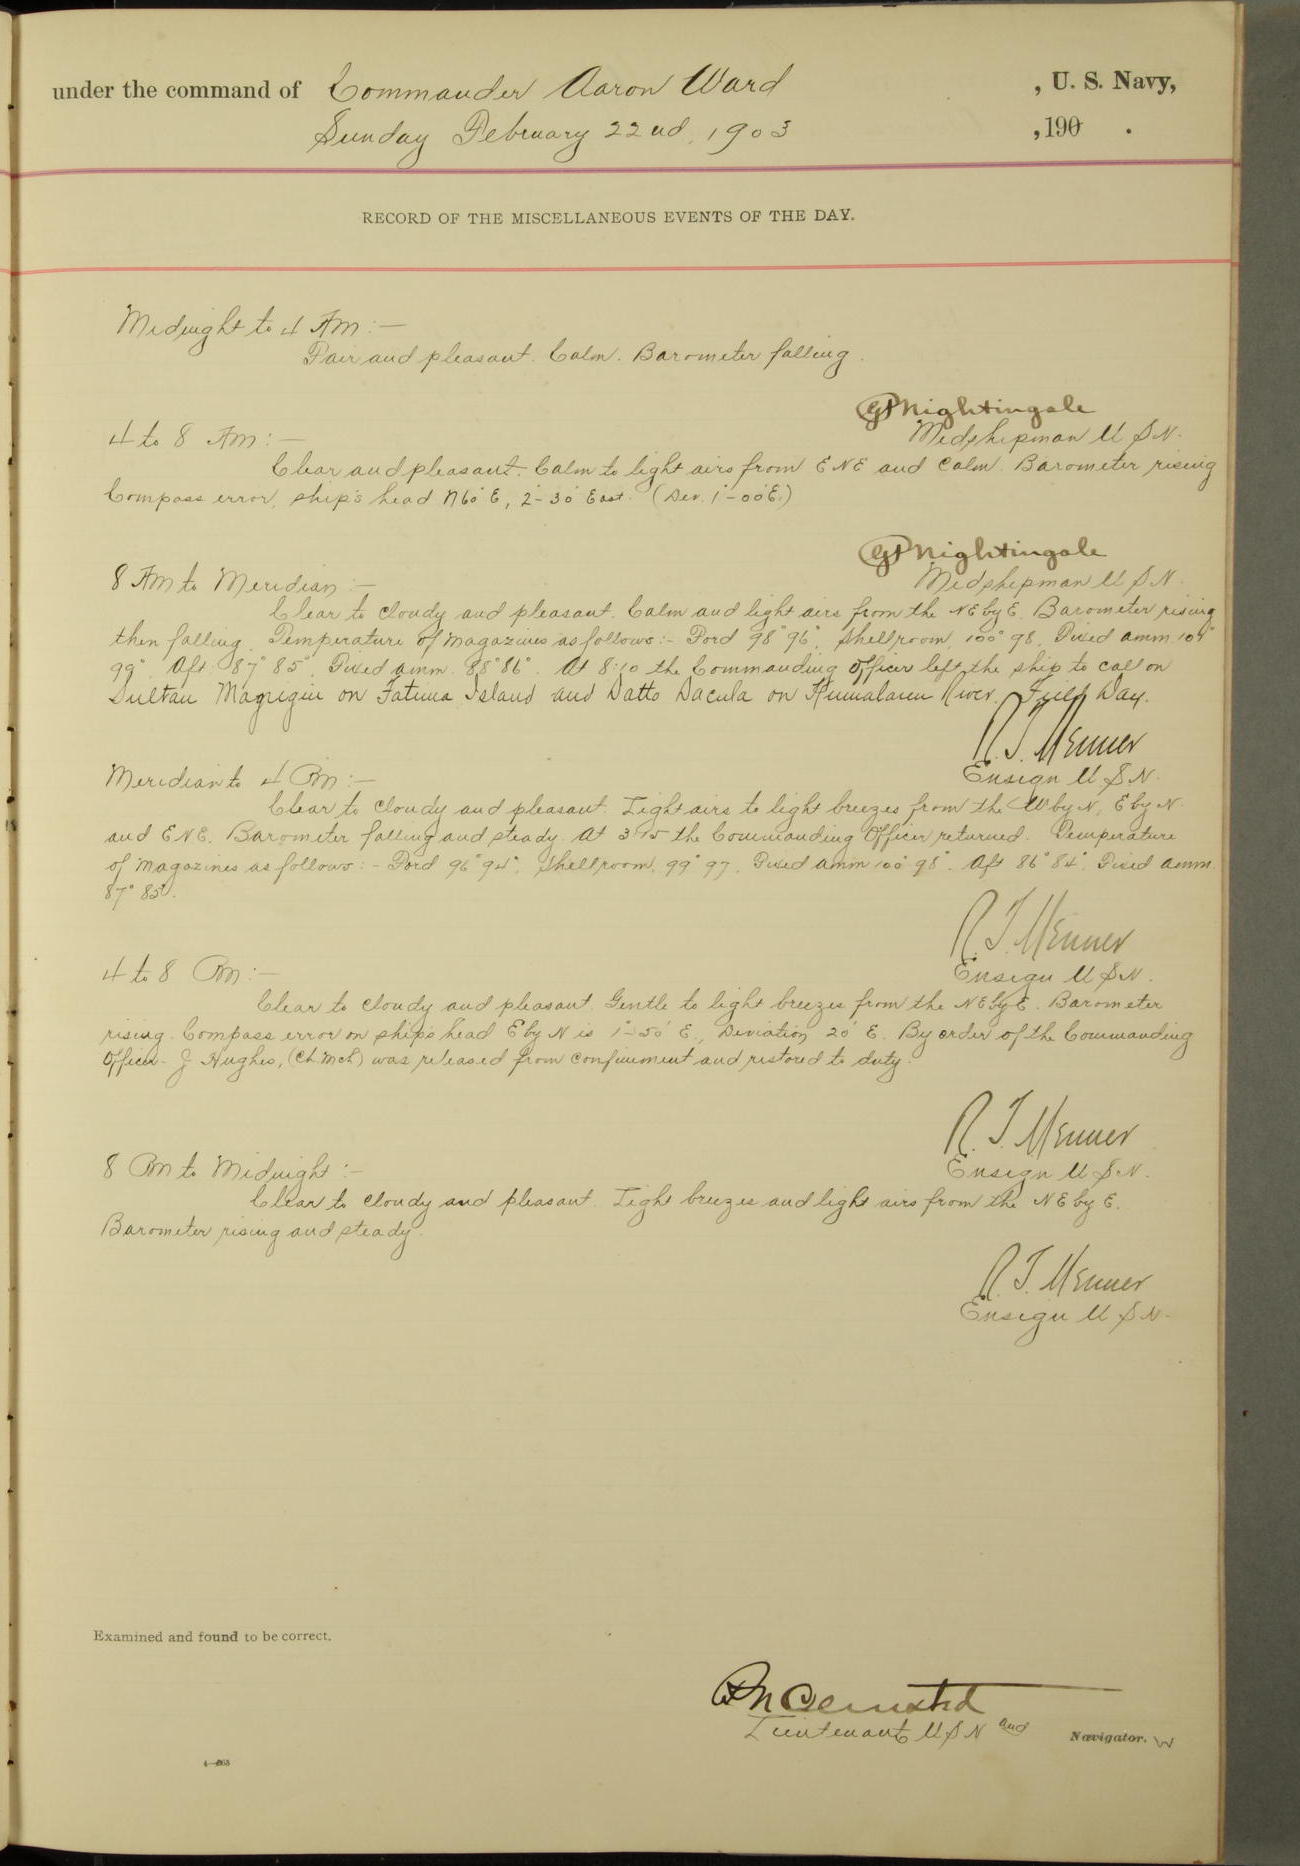 under the command of Commander Aaron Ward , U. S. Navy,
Sunday February 22nd, 1903 , 190 .
RECORD OF THE MISCELLANEOUS EVENTS OF THE DAY.
Midnight to 4 AM:—
Fair and pleasant. Calm. Barometer falling.
Nightingale
4 to 8 AM:— Midshipman U S N.
Clear and pleasant. Calm to light airs from ENE and Calm. Barometer rising
Compass error, ship's head N60°E, 2°-30' East. (Dev. 1°-00'E.)
Nightingale
8 AM to Meridian:— Midshipman U S N.
Clear to cloudy and pleasant. Calm and light airs from the NE by E. Barometer rising
then falling. Temperature of magazines as follows:- Ford 98° 96°, Shellroom, 100° 98, Fixed amm 101°
99°. Aft. 87° 85°. Fixed amm. 88° 86°. At 8:10 the Commanding Officer left the ship to call on
Sultan Magigin on Fatima Island and Datto Dacula on Kumalaren River. Field Day.
R. T. Menner
Meridian to 4 PM:— Ensign U S N.
Clear to cloudy and pleasant. Light airs to light breezes from the W by N, E by N.
and ENE. Barometer falling and steady. At 3 the Commanding Officer returned. Temperature
of magazines as follows:- Ford 96° 94°, Shellroom, 99° 97, Fixed amm 100° 98°. Aft 86° 84°, Fixed amm.
87° 85°.
R. T. Menner
4 to 8 PM:— Ensign U S N.
Clear to cloudy and pleasant. Gentle to light breezes from the NE by E. Barometer
rising. Compass error on ship's head E by N is 1°-50' E., Deviation, 20' E. By order of the Commanding
Officer- J Hughes, (Ch. Mch) was released from confinement and restored to duty.
R. T. Menner
8 PM to Midnight:— Ensign U S N.
Clear to cloudy and pleasant. Light breezes and light airs from the NE by E.
Barometer rising and steady.
R. T. Menner
Ensign U S N.
Examined and found to be correct.
Lieutenant U S N and Navigator.